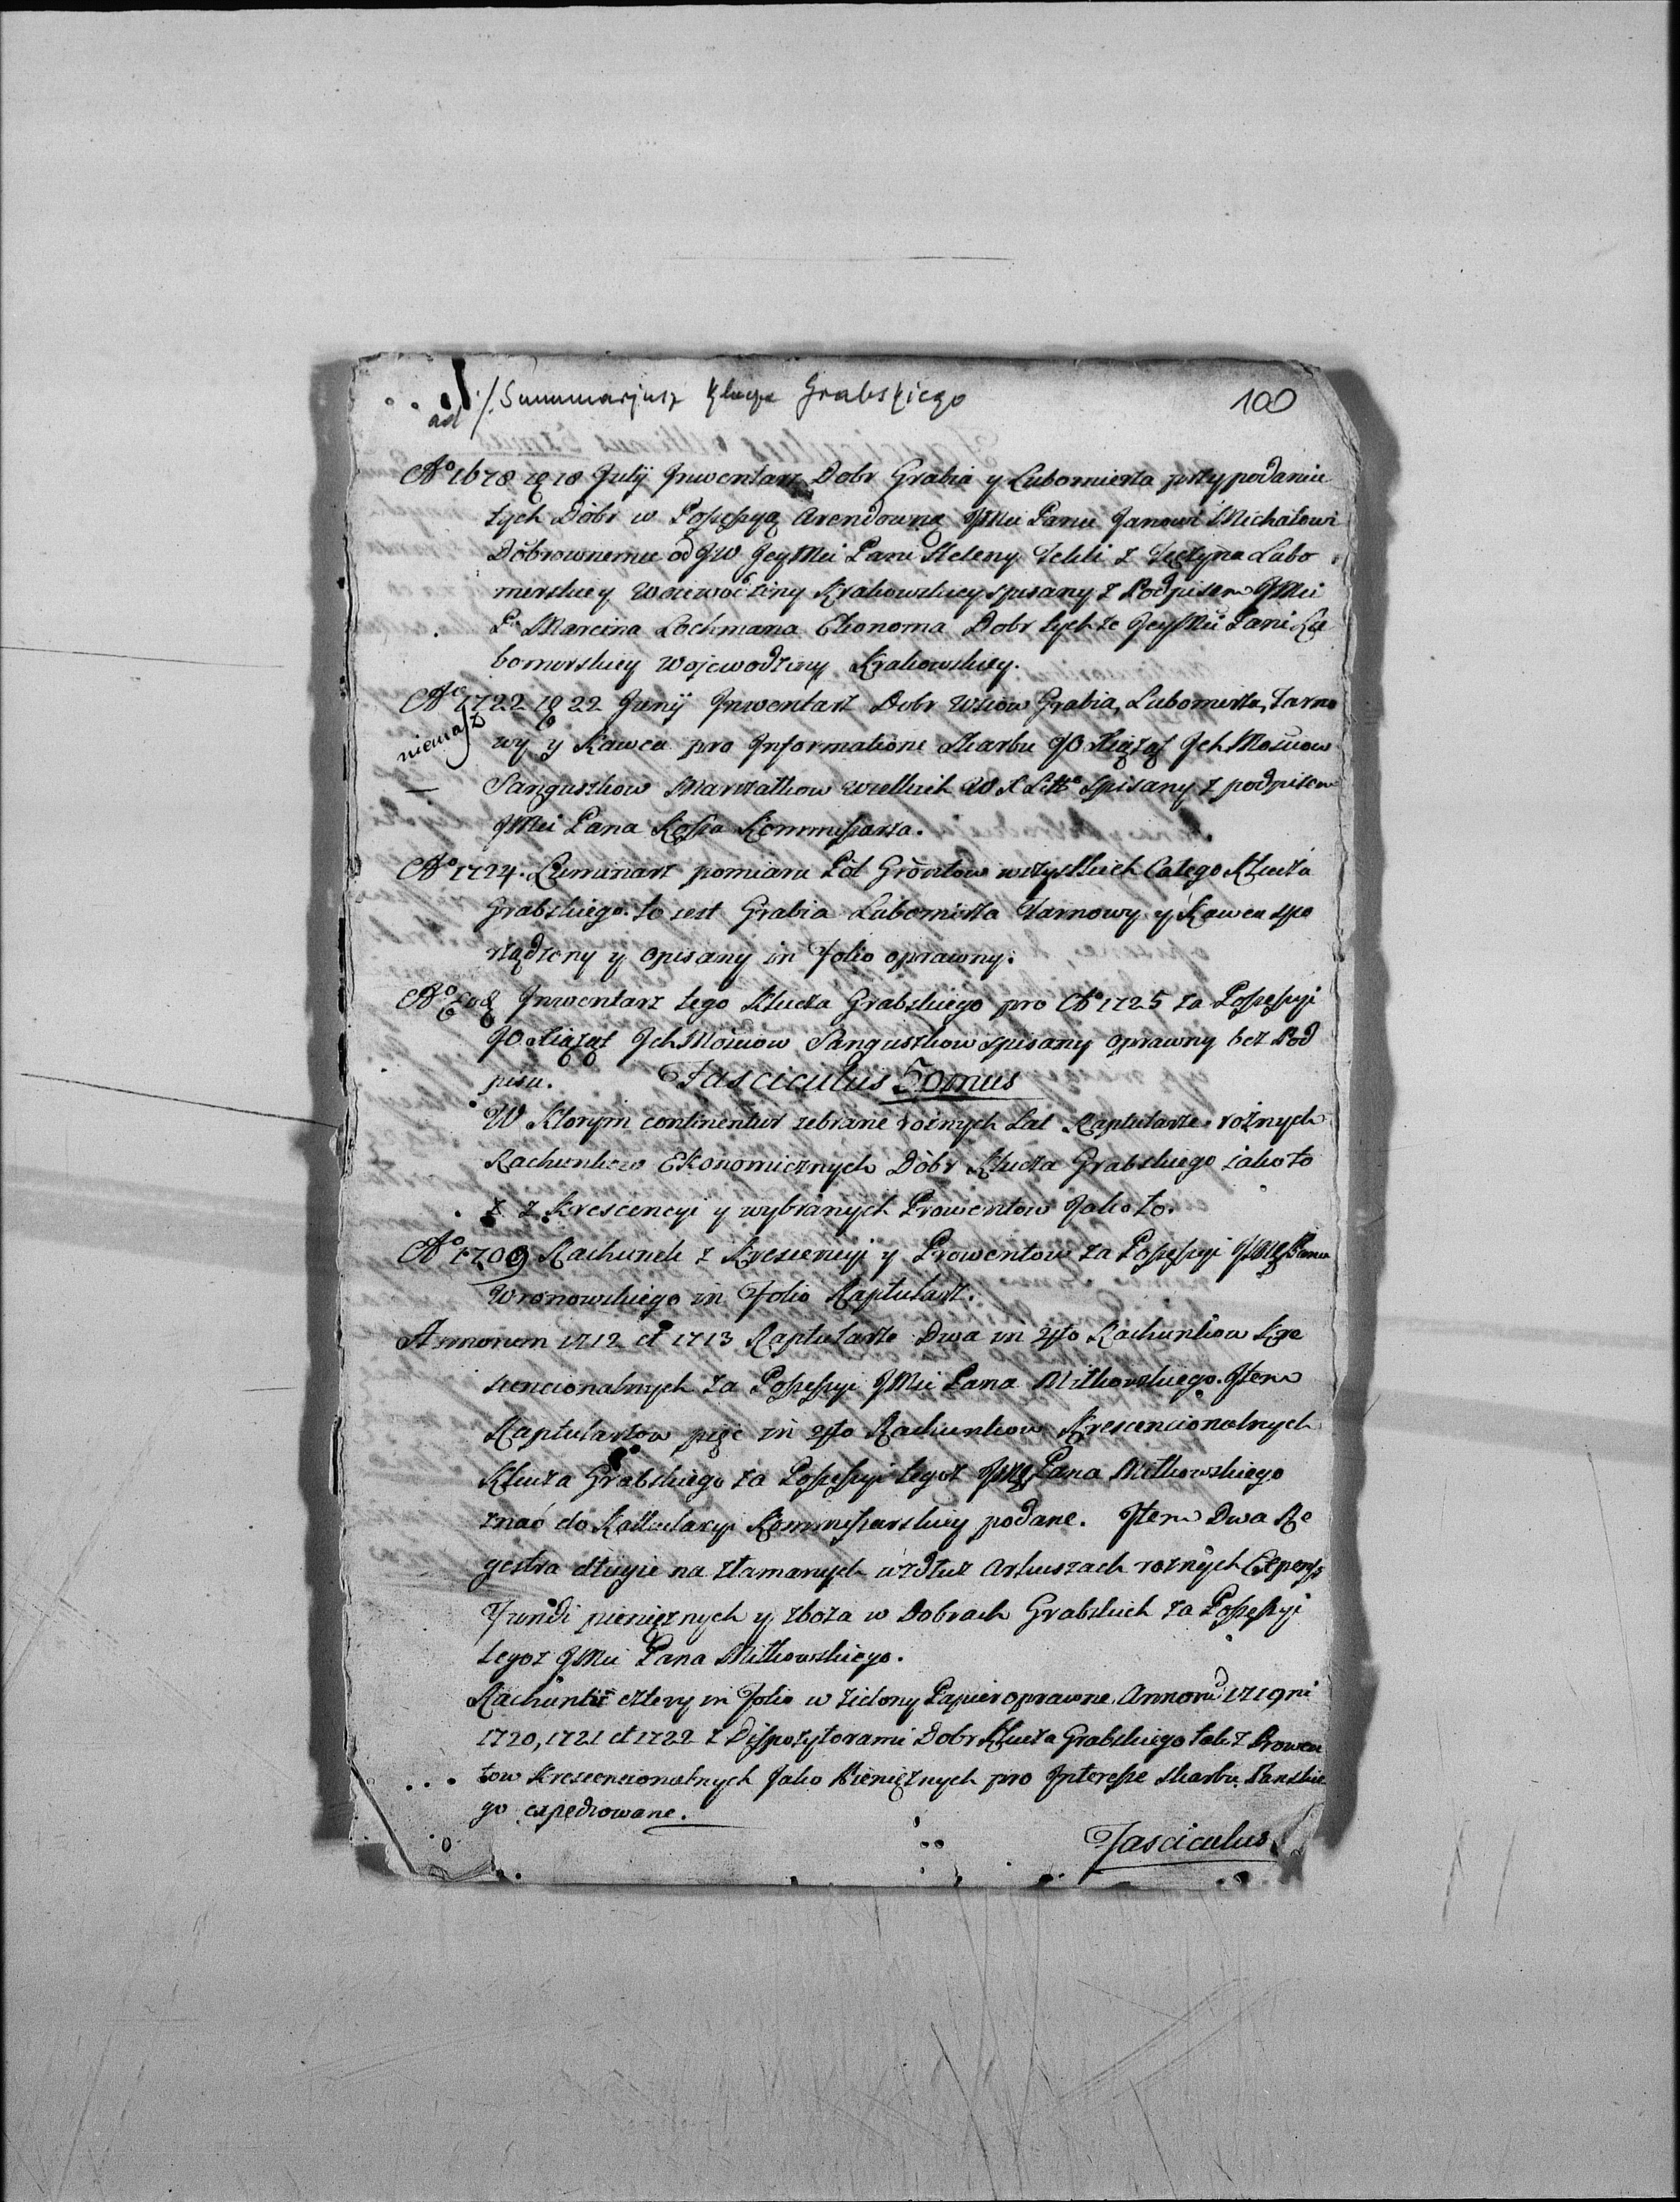 ad ./. Summarjusz Klucza Grabskiego
100
Aō 1678 18 July Inwentarz Dobr Grabia y Lubomierza przy podaniu
tych Dobr w Possessyą Arendowną JMci Panu Janowi Michałowi
Dobrownemu od JW JeyMci Pani Heleny Tekli z Tęczyna Lubo
mirskiey Woiewodziny Krakowskiey spisany z Podpisem JMci
Pa Marcina Lochmana Ekonoma Dobr tychże JeyMci Pani Lu
bomirskiey Wojewodziny Krakowskiey.
Aō 1722 22 Junij Inwentarz Dobr Wsiow Grabia, Lubomierza, Tarno
niemasz
wy y Kawca pro Informatione Skarbu JO Xiążąt Ich Mościow
Sanguszkow Marszałkow Wielkich W X Litto spisany z podpisem
JMci Pana Kossa Kommissarza.
Aō 1724. Luminarz pomiaru Pól Grontow wszystkich Całego Klucza
Grabskiego. to iest Grabia Lubomirza Tarnowy y Kawca spo
rządzony y opisany in Folio oprawny.
Aō Eod Inwentarz tego Klucza Grabskiego pro Aō 1725 za Possessyi
JO Xiążąt Ich Mościow Sanguszkow spisany oprawny bez Pod
pisu.
Fasciculus 5omus
W Ktorym continentur zebrane rożnych Lat Raptularze rożnych
Rachunkow Ekonomicznych Dobr Klucza Grabskiego iako to
z Krescencyi y wybranych Prowentow Jako to.
Aō 1709 Rachunek z Krescencyi y Prowentow za Possessyi Pana
Wronowskiego in Folio Raptularz.
Annorum 1712 et 1713 Raptularze Dwa in 4to Rachunkow Kre
scencionalnych za Possessyi JMci Pana Miłkowskiego. Item
Raptularzow pięć in 4to Rachunkow Krescencionalnych
Klucza Grabskiego za Possessyi tegoż Pana Miłkowskiego
znać do Kalkulacyi Kommissarskiey podane. Item Dwa Re
gestra długie na złamanych wzdłuż Arkuszach rożnych Expens
Fundi pieniężnych y zboża w Dobrach Grabskich za Possessyi
tegoż JMci Pana Miłkowskiego.
Rachunki cztery in Folio w zielony Papier oprawne Annorū 1719ni
1720, 1721 et 1722 z Dispozytorami Dobr Klucza Grabskiego tak z Prowen
tow Krescencionalnych Jako Pieniężnych pro Interesse skarbu Panskie
go expediowane.
Fasciculus